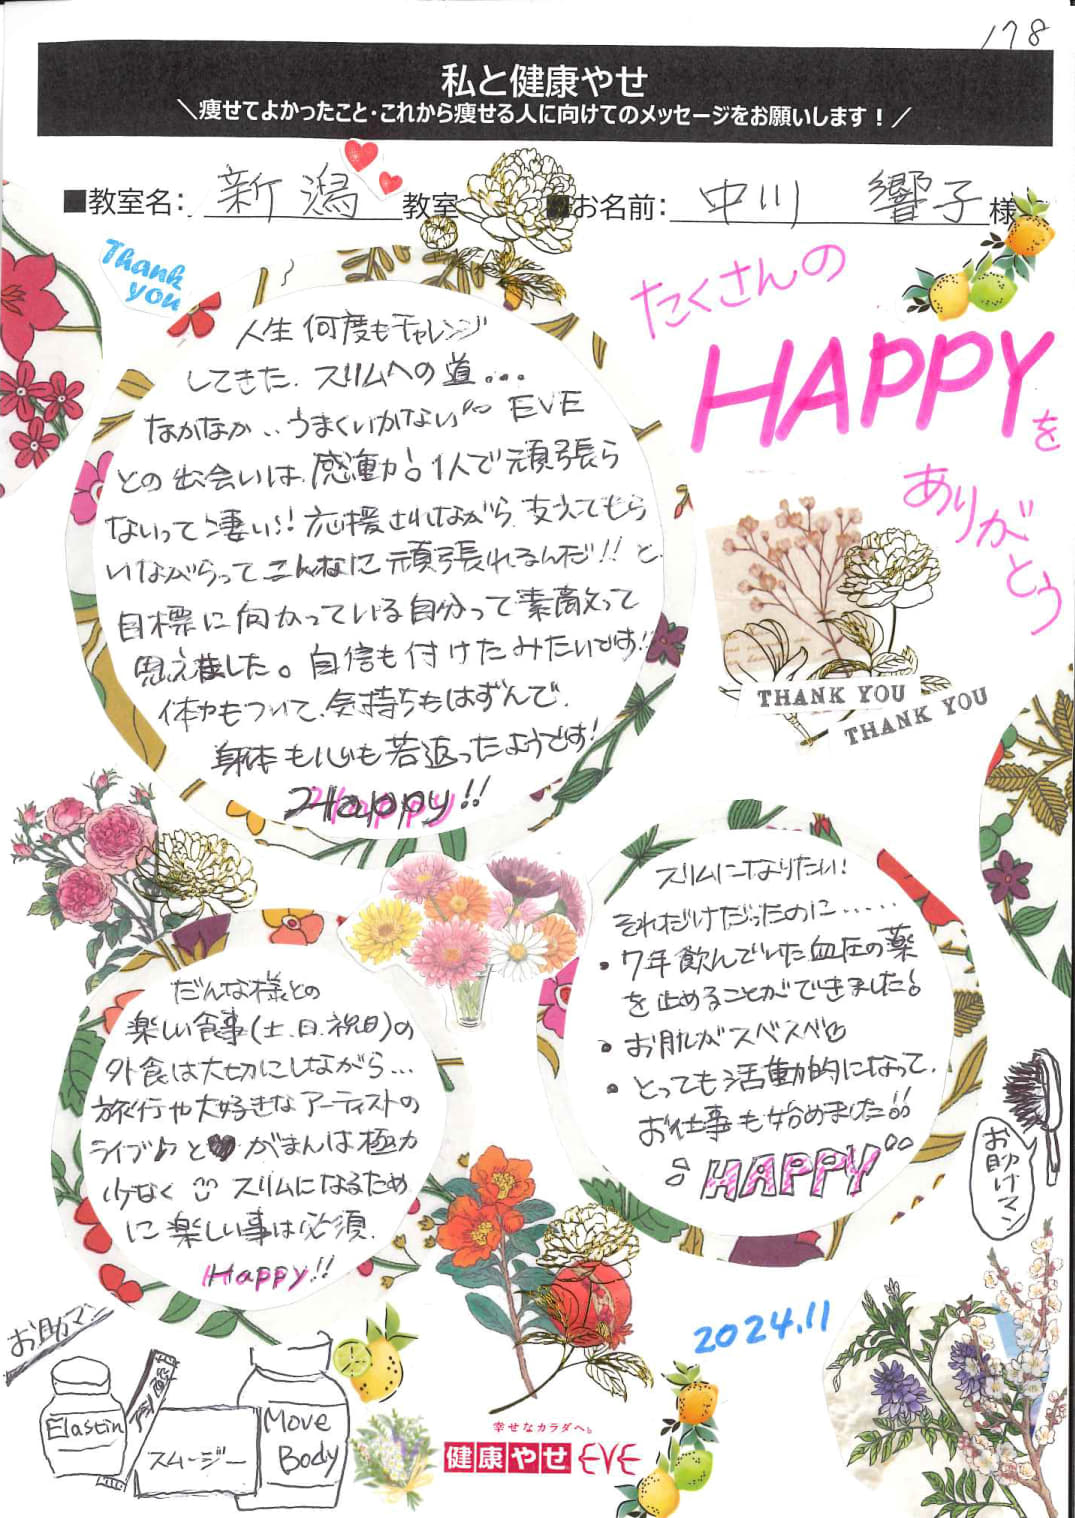 178
私と健康やせ
＼痩せてよかったこと・これから痩せる人に向けてのメッセージをお願いします！／
■教室名: 新潟 教室
■お名前: 中川 響子 様
Thank
you
たくさんの
HAPPYを
ありがとう
人生 何度もチャレンジ
してきた. スリムへの道...
なかなか..うまくいかない EVE
との出会いは. 感動！1人で頑張ら
ないって凄い！応援されながら. 支えてもら
いながらってこんなに頑張れるんだ!! と
目標に向かっている自分って素敵って
思えました。自信も付けたみたいです!!
体力もついて、気持ちもはずんで.
身体も心も若返ったようです!
Happy!!
THANK YOU
THANK YOU
スリムになりたい!
それだけだったのに.....
・7年飲んでいた血圧の薬
を止めることができました！
・お肌がスベスベ
・とっても活動的になって.
お仕事も始めました
HAPPY
だんな様との
楽しい食事(土.日.祝日)の
外食は大切にしながら...
旅行や大好きなアーティストの
ライブ♪と♥がまんは極力
少なく スリムになるため
に楽しい事は必須.
Happy!!
お助けマン
2024.11
お助マン
Elastin
スムージー
Move
Body
幸せなカラダへ。
健康やせ EVE